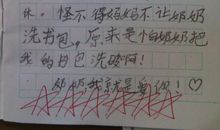 休。怪不得妈妈不让奶奶
洗书包。原来是怕奶奶把
我的书包洗破啊!
奶奶我就是爱你!